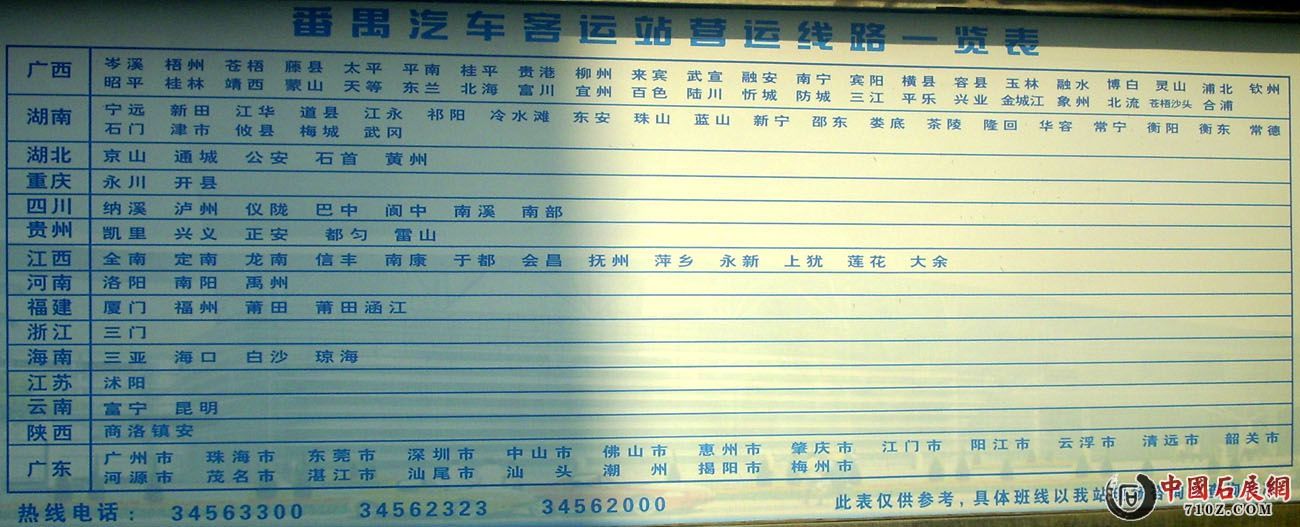 番禺汽车客运站营运线路一览表
广西
岑溪 梧州 苍梧 藤县 太平 平南 桂平 贵港 柳州 来宾 武宣 融安 南宁 宾阳 横县 容县 玉林 融水 博白 灵山 浦北 钦州
昭平 桂林 靖西 蒙山 天等 东兰 北海 富川 宜州 百色 陆川 忻城 防城 三江 平乐 兴业 金城江 象州 北流 苍梧沙头 合浦
湖南
宁远 新田 江华 道县 江永 祁阳 冷水滩 东安 珠山 蓝山 新宁 邵东 娄底 茶陵 隆回 华容 常宁 衡阳 衡东 常德
石门 津市 攸县 梅城 武冈
湖北 京山 通城 公安 石首 黄州
重庆 永川 开县
四川 纳溪 泸州 仪陇 巴中 阆中 南溪 南部
贵州 凯里 兴义 正安 都匀 雷山
江西 全南 定南 龙南 信丰 南康 于都 会昌 抚州 萍乡 永新 上犹 莲花 大余
河南 洛阳 南阳 禹州
福建 厦门 福州 莆田 莆田涵江
浙江 三门
海南 三亚 海口 白沙 琼海
江苏 沭阳
云南 富宁 昆明
陕西 商洛镇安
广东
广州市 珠海市 东莞市 深圳市 中山市 佛山市 惠州市 肇庆市 江门市 阳江市 云浮市 清远市 韶关市
河源市 茂名市 湛江市 汕尾市 汕头 潮州 揭阳市 梅州市
热线电话: 34563300 34562323 34562000 此表仅供参考,具体班线以我站
中國石展網
71OZ.COM